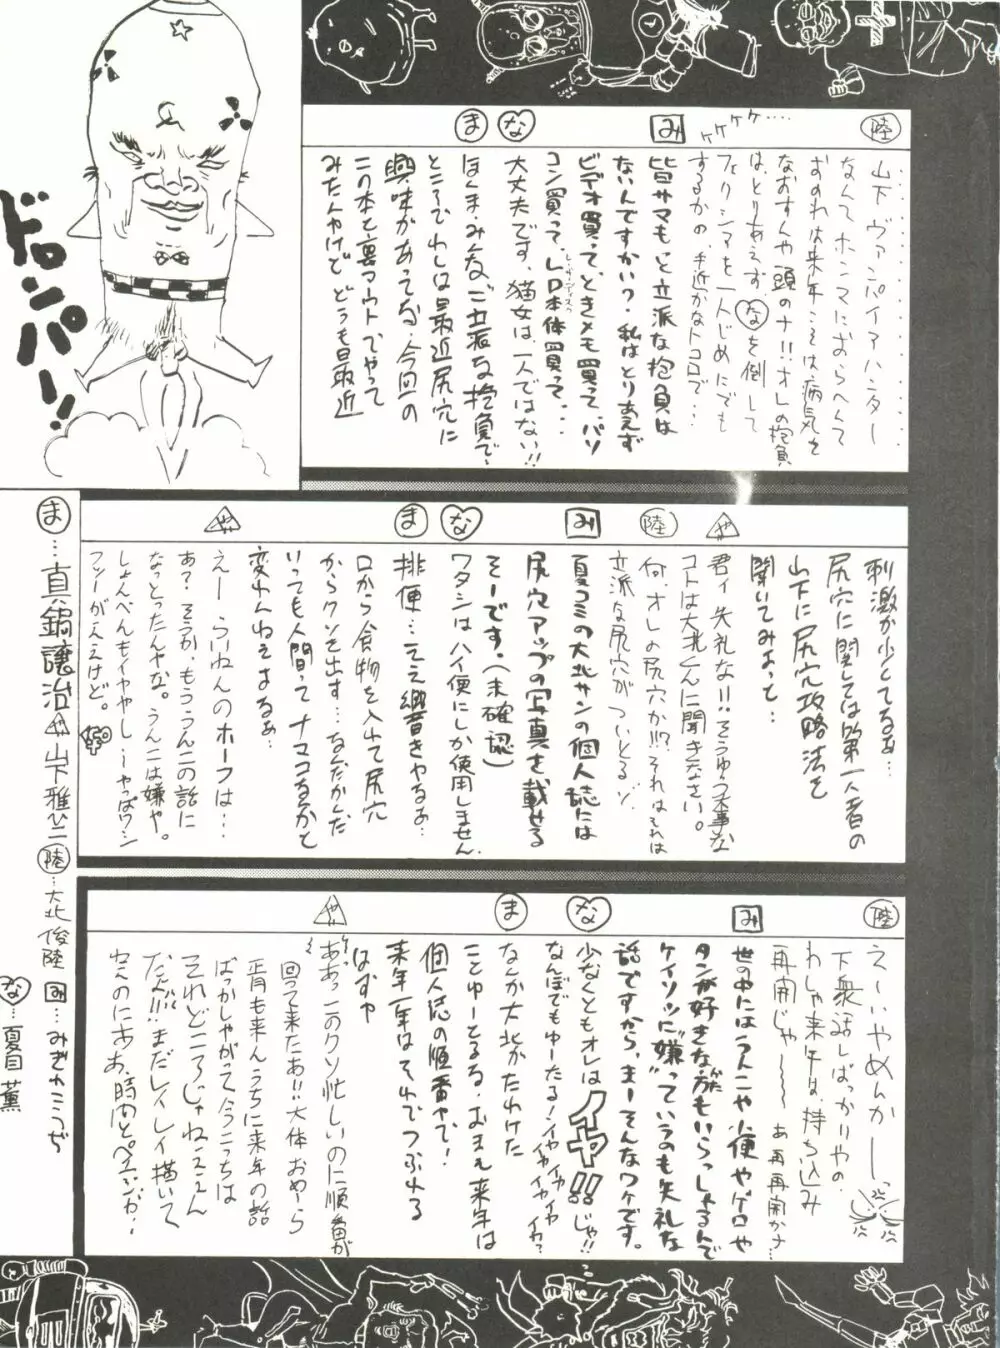 陸
山下ヴァンパイアハンター
なんてホンマにおらへくて
おのれは来年こそは病気を
なおすんや頭のナ!!オレの抱負
は、とりあえず、なを倒して
フェリシアを一人じめにでも
するかの、手近かなトコロで…
ケケケケ…
み
皆サマもっと立派な抱負は
ないんですかい?私はとりあえず
ビデオ買って、ときメモ買って、パソ
コン買って、LD本体買って…
な
大丈夫です、猫女は、一人ではない!!
ま
ほんま、みんな、ご立派な抱負で、
ところでわしは最近尻穴に
興味があってな、今回の
この本を裏マウトでやって
みたんやけど、どうも最近
ドロンパー!!
刺激が少くてなぁ…
尻穴に関しては第一人者の
山下に尻穴攻略法を
聞いてみよっと
や
君ィ失礼な!!そうゆう大事な
コトは大北くんに聞きなさい。
陸
何、オレの尻穴か!!?それはそれは
立派な尻穴がついとるゾ
み
夏コミの大北サンの個人誌には
尻穴アップの写真を載せる
そーです。(未確認)
な
ワタシはハイ便にしか使用しません
ま
排便…ええ響きやなぁ…
口から食物を入れて尻穴
からクソを出す…なんだかんだ
いっても人間ってナマコなんかと
変わんねえよなぁ…
や
えー らいねんのホーフは…
あ?そうか、もううんこの話に
なっとったんやな。うんこは嫌や。
しょんべんもイヤやし…やっぱワシ
フツーがええけど。
陸
え~いやめんかーっ
下衆話しばっかりやの
わしゃ来年は、持ち込み
再開じゃ~~~ あ 再再開かナ…
み
世の中にはうんこや小便やゲロや
タンが好きな方もいらっしゃるんで
ケイソツに"嫌"っていうのも失礼な
話ですから、まーそんなワケです。
な
少なくともオレはイヤ!!じゃ!!
なんぼでもゆーたる!イヤイヤイヤイヤイヤ イヤ?
ま
なんか大北がたわけた
ことゆーとるな、おまえ来年は
個人誌の順番やで!
来年一年はそれでつぶれる
はずや
や
ああっこのクソ忙しいのに順番が
回って来たぁ!!大体おめーら
正月も来んうちに来年の話
ばっかしやがって今こっちは
それどころじゃねええん
だよ!!まだレイレイ描いて
ま…真鍋譲治 や 山下雅 陸…大北俊陸 み…みぎわこうぢ な…夏目薫